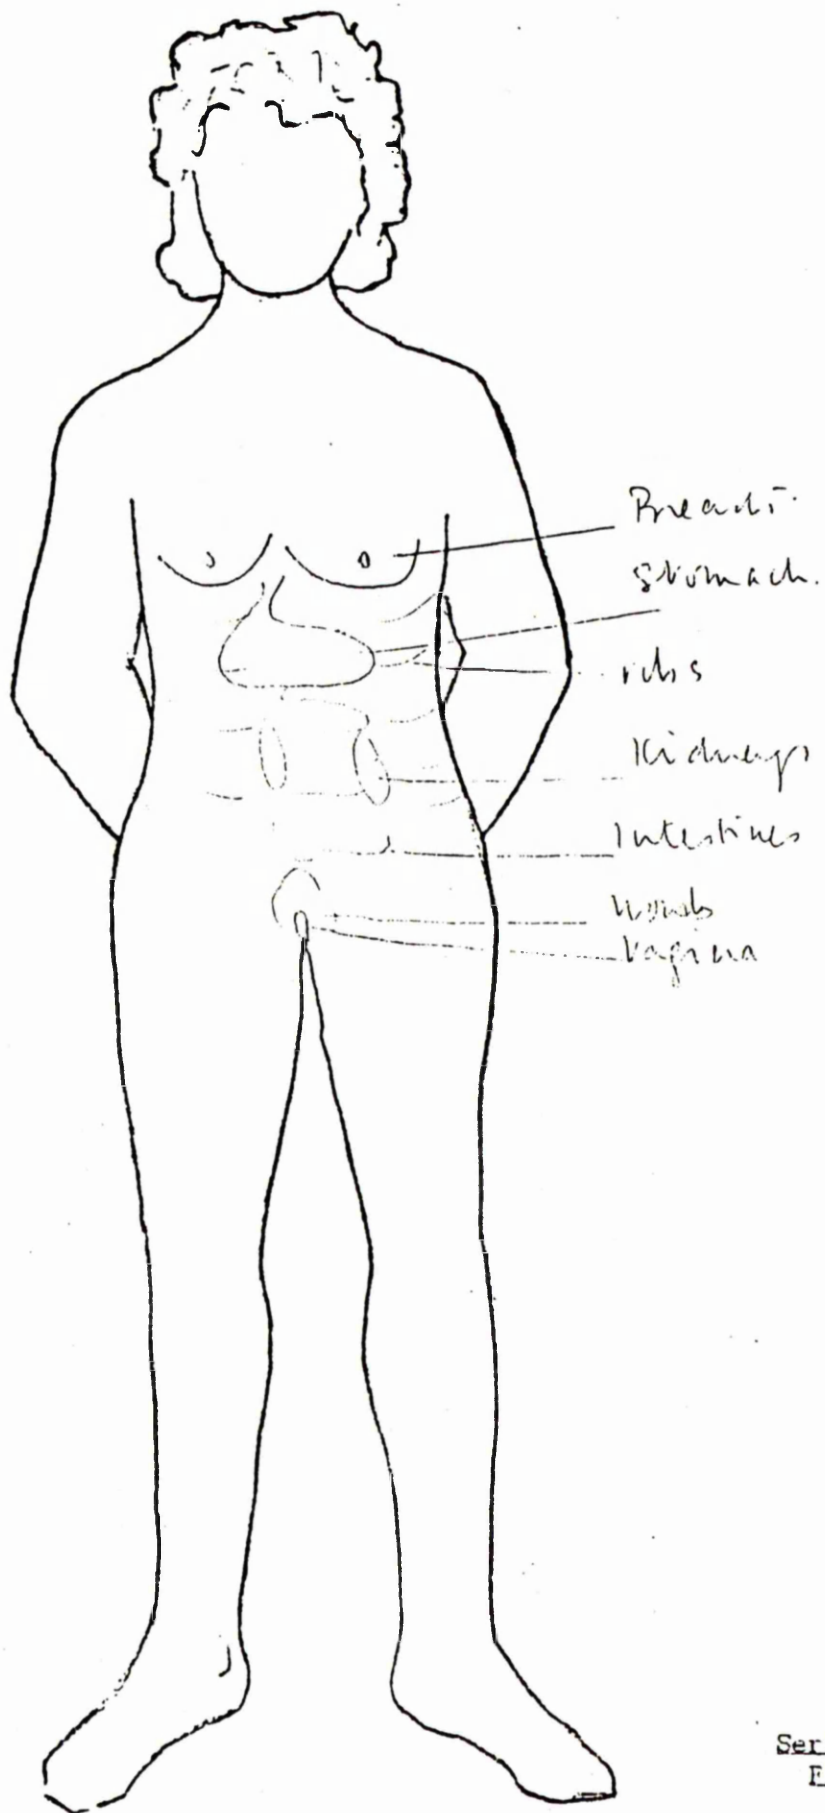 Breasts
Stomach.
ribs
Kidneys
Intestines
Womb
Vagina
Ser